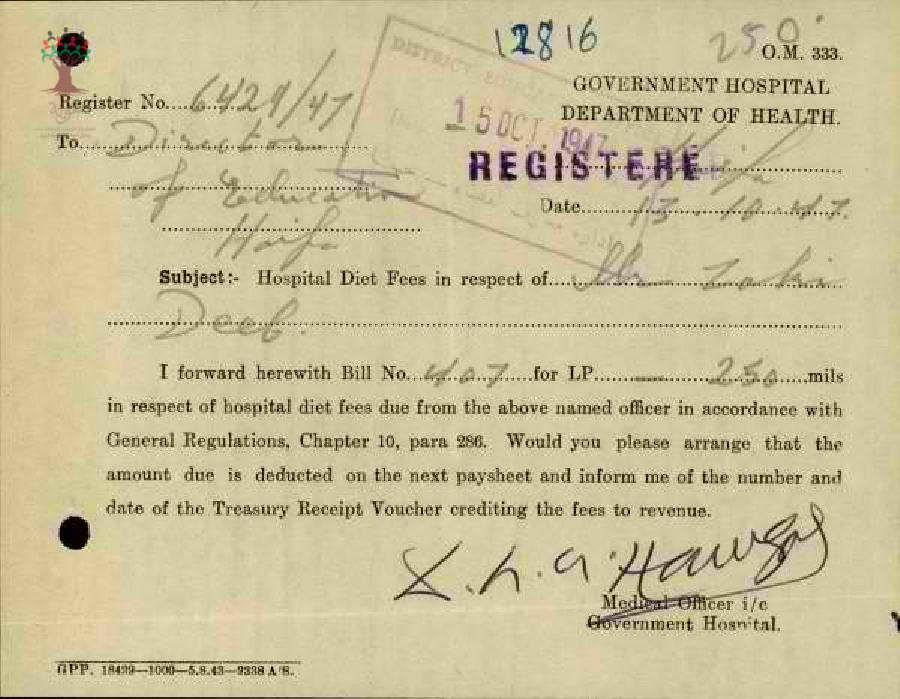 12816
250
O.M. 333.
GOVERNMENT HOSPITAL
DEPARTMENT OF HEALTH.
Register No. 6429/47
DISTRICT
15 OCT. 1947
REGISTERE
To Director
of Education
Haifa
Haifa
Date 13.10.47.
Subject:- Hospital Diet Fees in respect of Mr Zaki
Deeb.
I forward herewith Bill No. 407 for LP. — 250 mils
in respect of hospital diet fees due from the above named officer in accordance with
General Regulations, Chapter 10, para 286. Would you please arrange that the
amount due is deducted on the next paysheet and inform me of the number and
date of the Treasury Receipt Voucher crediting the fees to revenue.
Medical Officer i/c
Government Hospital.
GPP. 18439—1000—5.8.43—2338 A/S.